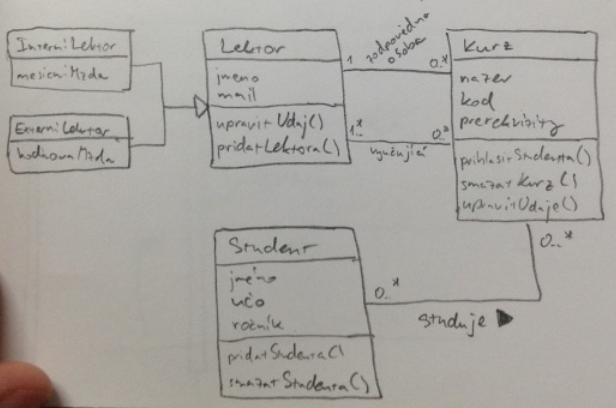 InterniLektor
mesicniMzda
ExterniLektor
hodinovaMzda
Lektor
jmeno
mail
upravitUdaj()
pridatLektora()
1
zodpovědná
osoba
0..*
1..*
0..*
vyučující
Kurz
nazev
kod
prerekvizity
prihlasitStudenta()
smazatKurz()
upravitUdaje()
0..*
Student
jméno
učo
ročník
pridatStudenta()
smazatStudenta()
0..*
studuje